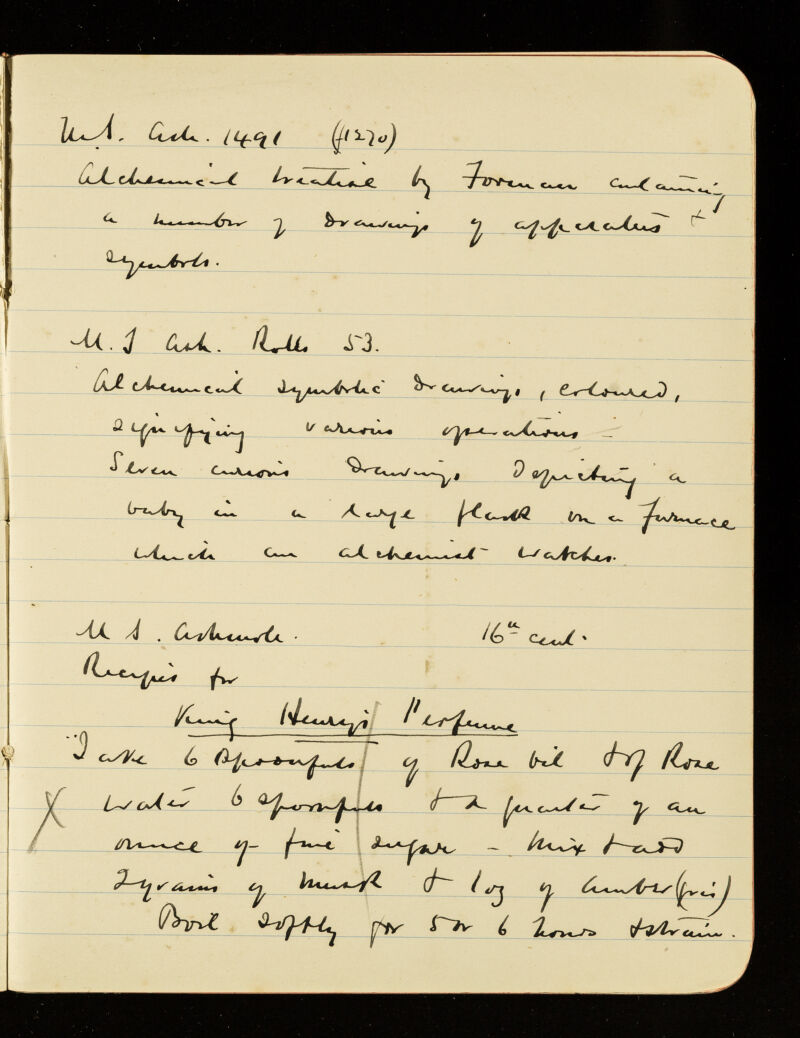 M.S. Ash. 1491 (f1270)
Alchemical treatise by Forman containing
a number of drawings of apparatus +
symbols.
M.S Ash. Rolls 53.
Alchemical symbolic drawings, coloured,
signifying various operations –
Seven curious drawings depicting a
baby in a large flask on a furnace
which an alchemist watches.
M S. Ashmole. 16th cent.
Recipes for
King Henry's Perfume
"Take 6 spoonfuls of Rose oil + of Rose
water 6 spoonfuls + a quarter of an
ounce of fine sugar – mix + add
2 grains of musk + 1 oz of Amber(gris)
Boil softly for 5 or 6 hours + strain.